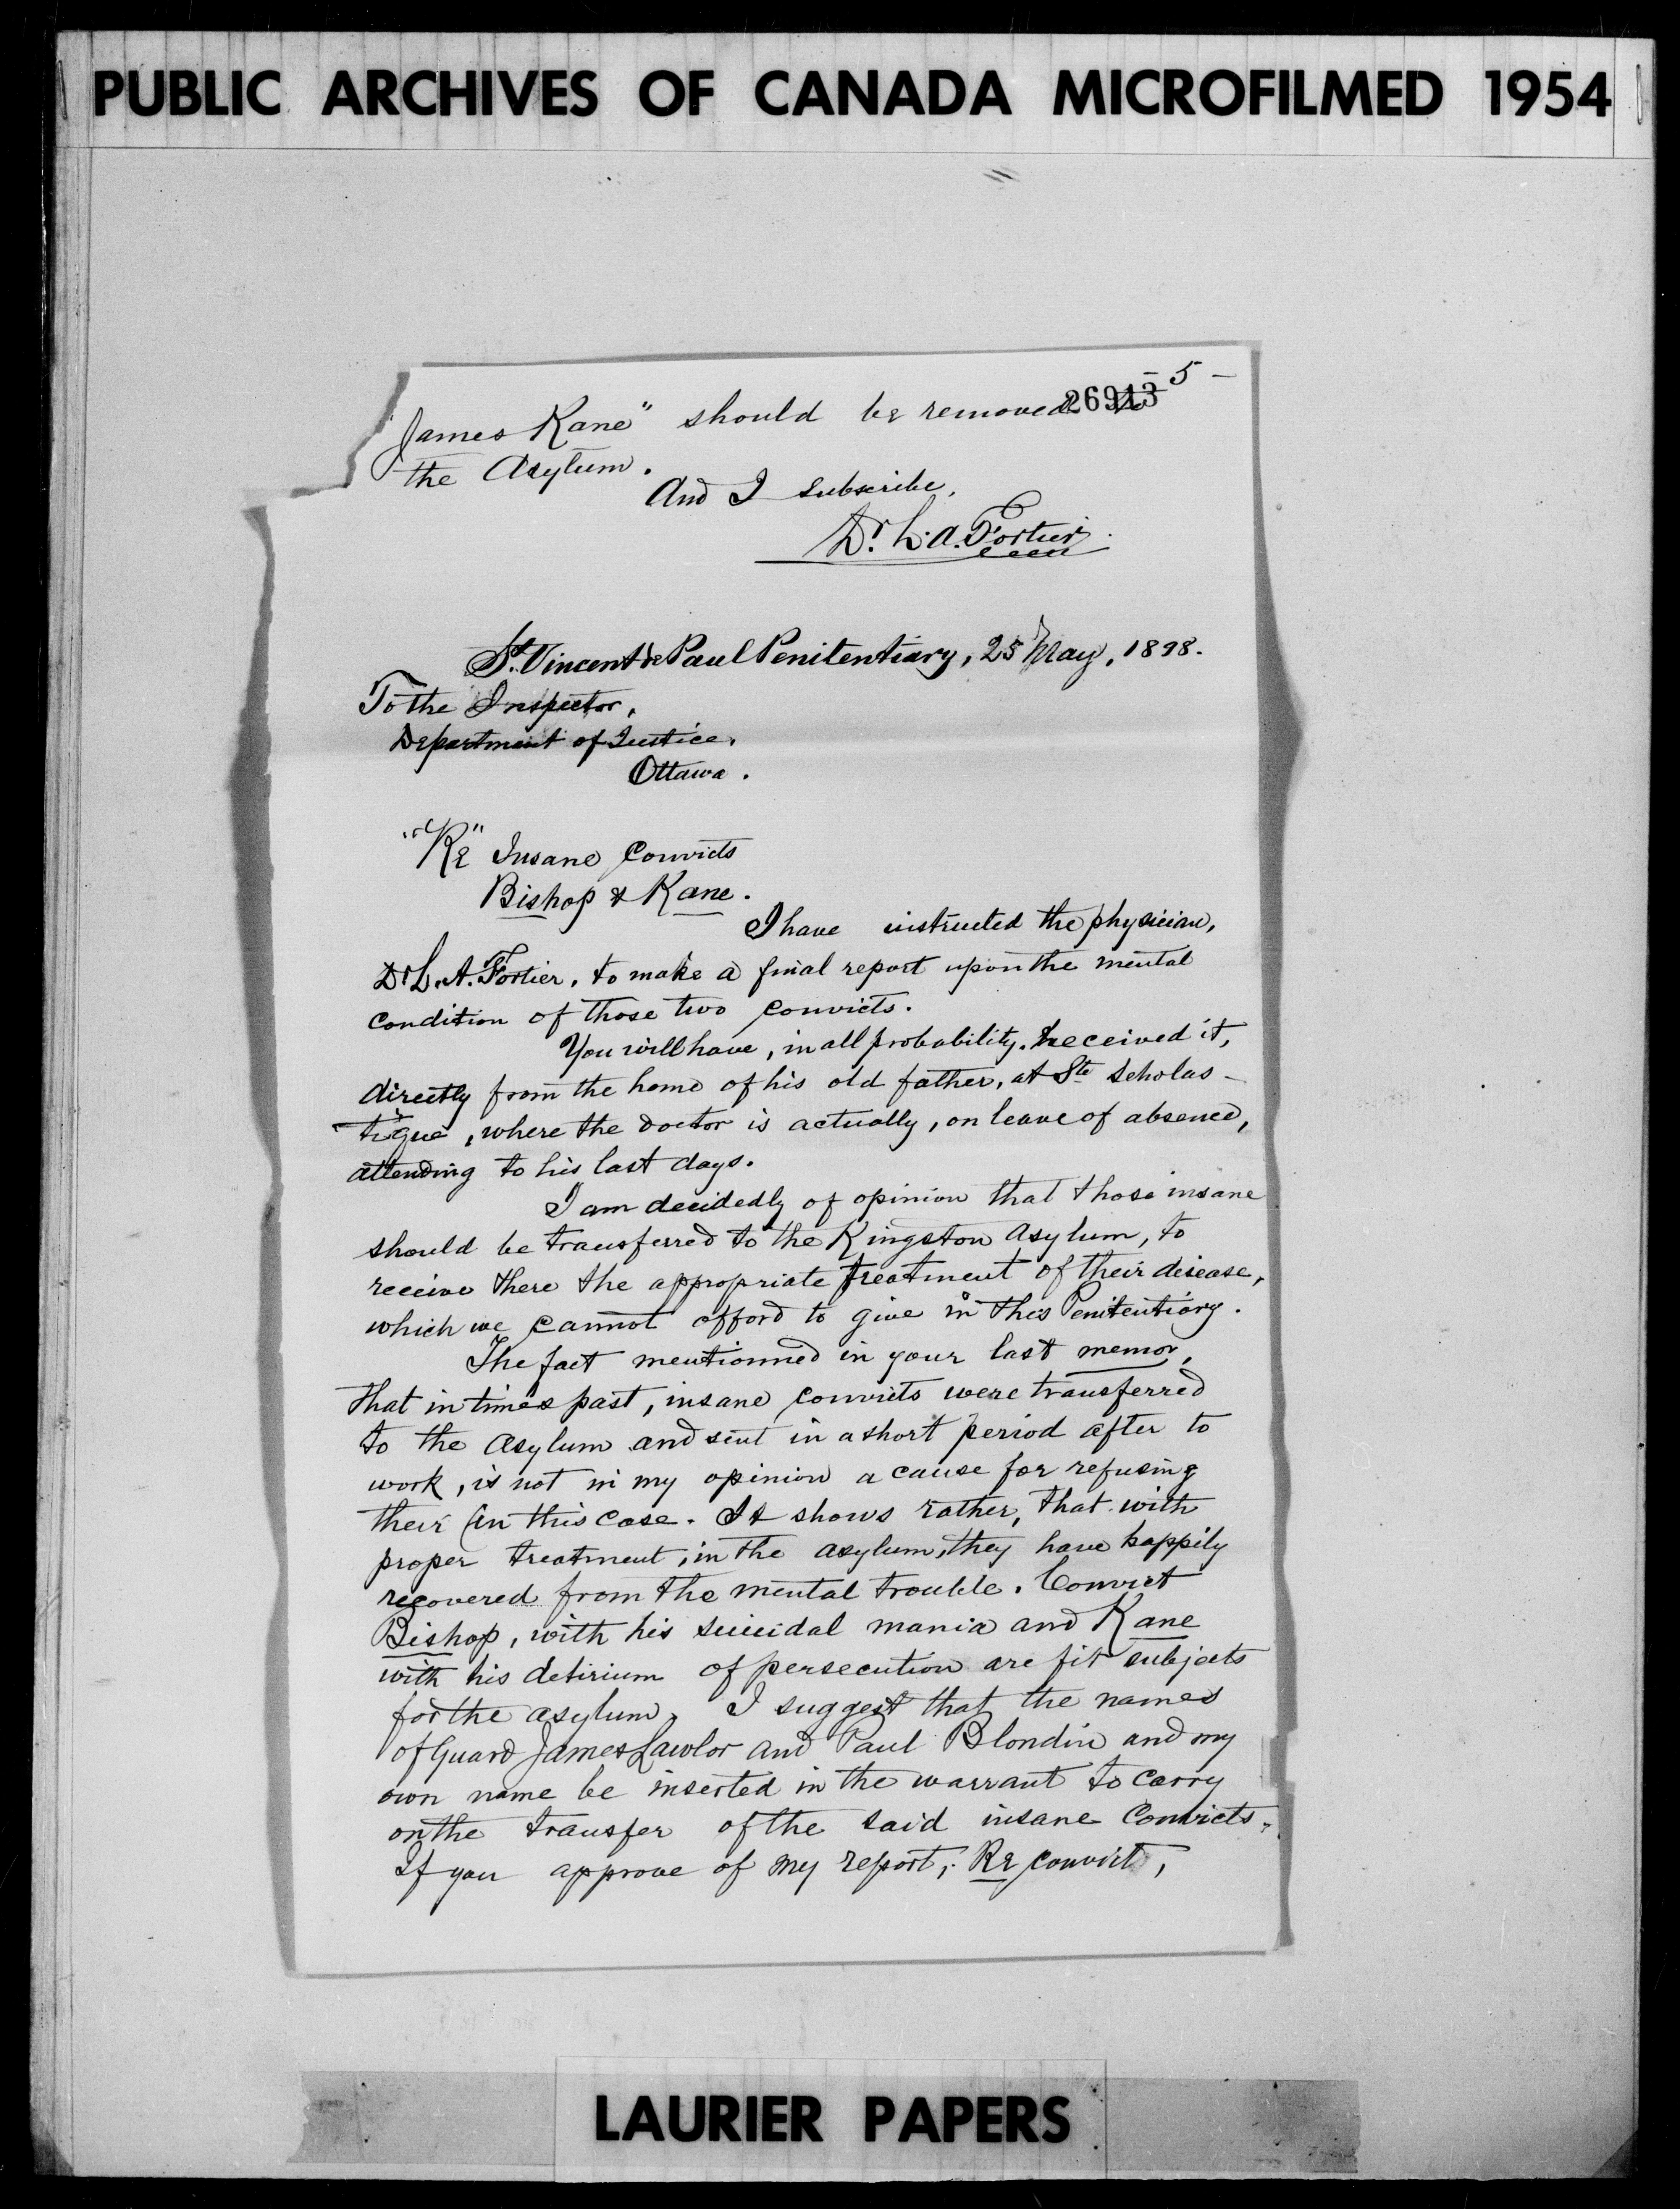 PUBLIC ARCHIVES OF CANADA MICROFILMED 1954
- 5 -
26943
"James Kane" should be removed to
the Asylum.
And I subscribe,
Dr. L. A. Fortier.
St. Vincent de Paul Penitentiary, 25 May, 1898.
To the Inspector,
Department of Justice,
Ottawa.
"Re" Insane Convicts
Bishop & Kane.
I have instructed the physician,
Dr L. A. Fortier, to make a final report upon the mental
condition of those two convicts.
You will have, in all probability, received it,
directly from the home of his old father, at Ste Scholas-
tique, where the doctor is actually, on leave of absence,
attending to his last days.
I am decidedly of opinion that those insane
should be transferred to the Kingston Asylum, to
receive there the appropriate treatment of their disease,
which we cannot afford to give in this Penitentiary.
The fact mentionned in your last memor,
that in times past, insane convicts were transferred
to the Asylum and sent in a short period after to
work, is not in my opinion a cause for refusing
their in this case. It shows rather, that with
proper treatment, in the asylum, they have happily
recovered from the mental trouble. Convict
Bishop, with his suicidal mania and Kane
with his delirium of persecution are fit subjects
for the asylum. I suggest that the names
of Guard James Lawlor and Paul Blondin and my
own name be inserted in the warrant to carry
on the transfer of the said insane Convicts.
If you approve of my report, Re convict,
LAURIER PAPERS